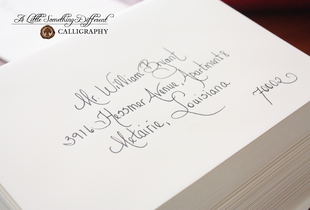 A Little Something Different
CALLIGRAPHY
Mr. William Bryant
3916 Hessmer Avenue, Apartment 8
Metairie, Louisiana
70002